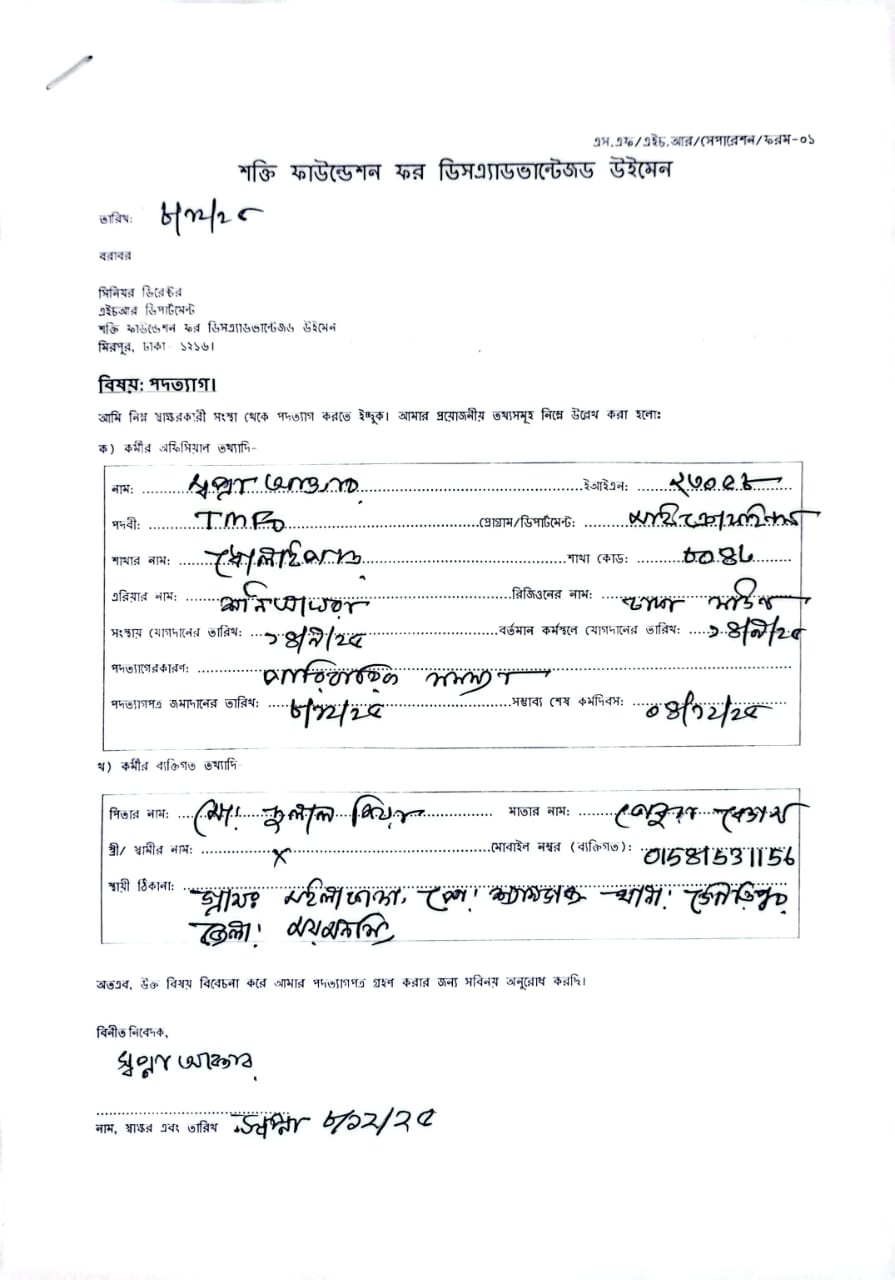 এস.এফ/এইচ.আর/সেপারেশন/ফরম-০১
শক্তি ফাউন্ডেশন ফর ডিসএ্যাডভান্টেজড উইমেন
তারিখ: ৮/১২/২৫
বরাবর
সিনিয়র ডিরেক্টর
এইচআর ডিপার্টমেন্ট
শক্তি ফাউন্ডেশন ফর ডিসএ্যাডভান্টেজড উইমেন
মিরপুর, ঢাকা- ১২১৬।
বিষয়: পদত্যাগ।
আমি নিম্ন স্বাক্ষরকারী সংস্থা থেকে পদত্যাগ করতে ইচ্ছুক। আমার প্রয়োজনীয় তথ্যসমূহ নিম্নে উল্লেখ করা হলোঃ
ক) কর্মীর অফিসিয়াল তথ্যাদি-
নাম: স্বপ্না আক্তার ইআইএন:
পদবী: পোগ্রাম/ডিপার্টমেন্ট: মাইক্রোফাইন্যান্স
শাখার নাম: শাখা কোড:
এরিয়ার নাম: রিজিওনের নাম: ঢাকা
সংস্থায় যোগদানের তারিখ: ১৪/৯/২৫ বর্তমান কর্মস্থলে যোগদানের তারিখ: ১৪/৯/২৫
পদত্যাগেরকারণ: পারিবারিক সমস্যা
পদত্যাগপত্র জমাদানের তারিখ: ৮/১২/২৫ সম্ভাব্য শেষ কর্মদিবস: ০৪/১২/২৫
খ) কর্মীর ব্যক্তিগত তথ্যাদি-
পিতার নাম: মো: দুলাল মিয়া মাতার নাম: বেগম
স্ত্রী/ স্বামীর নাম: X মোবাইল নম্বর (ব্যক্তিগত): 01581531156
স্থায়ী ঠিকানা: গ্রামঃ থানা: গৌরিপুর
জেলা: ময়মনসিং
অতএব, উক্ত বিষয় বিবেচনা করে আমার পদত্যাগপত্র গ্রহণ করার জন্য সবিনয় অনুরোধ করছি।
বিনীত নিবেদক,
স্বপ্না আক্তার
নাম, স্বাক্ষর এবং তারিখ স্বপ্না ৮/১২/২৫